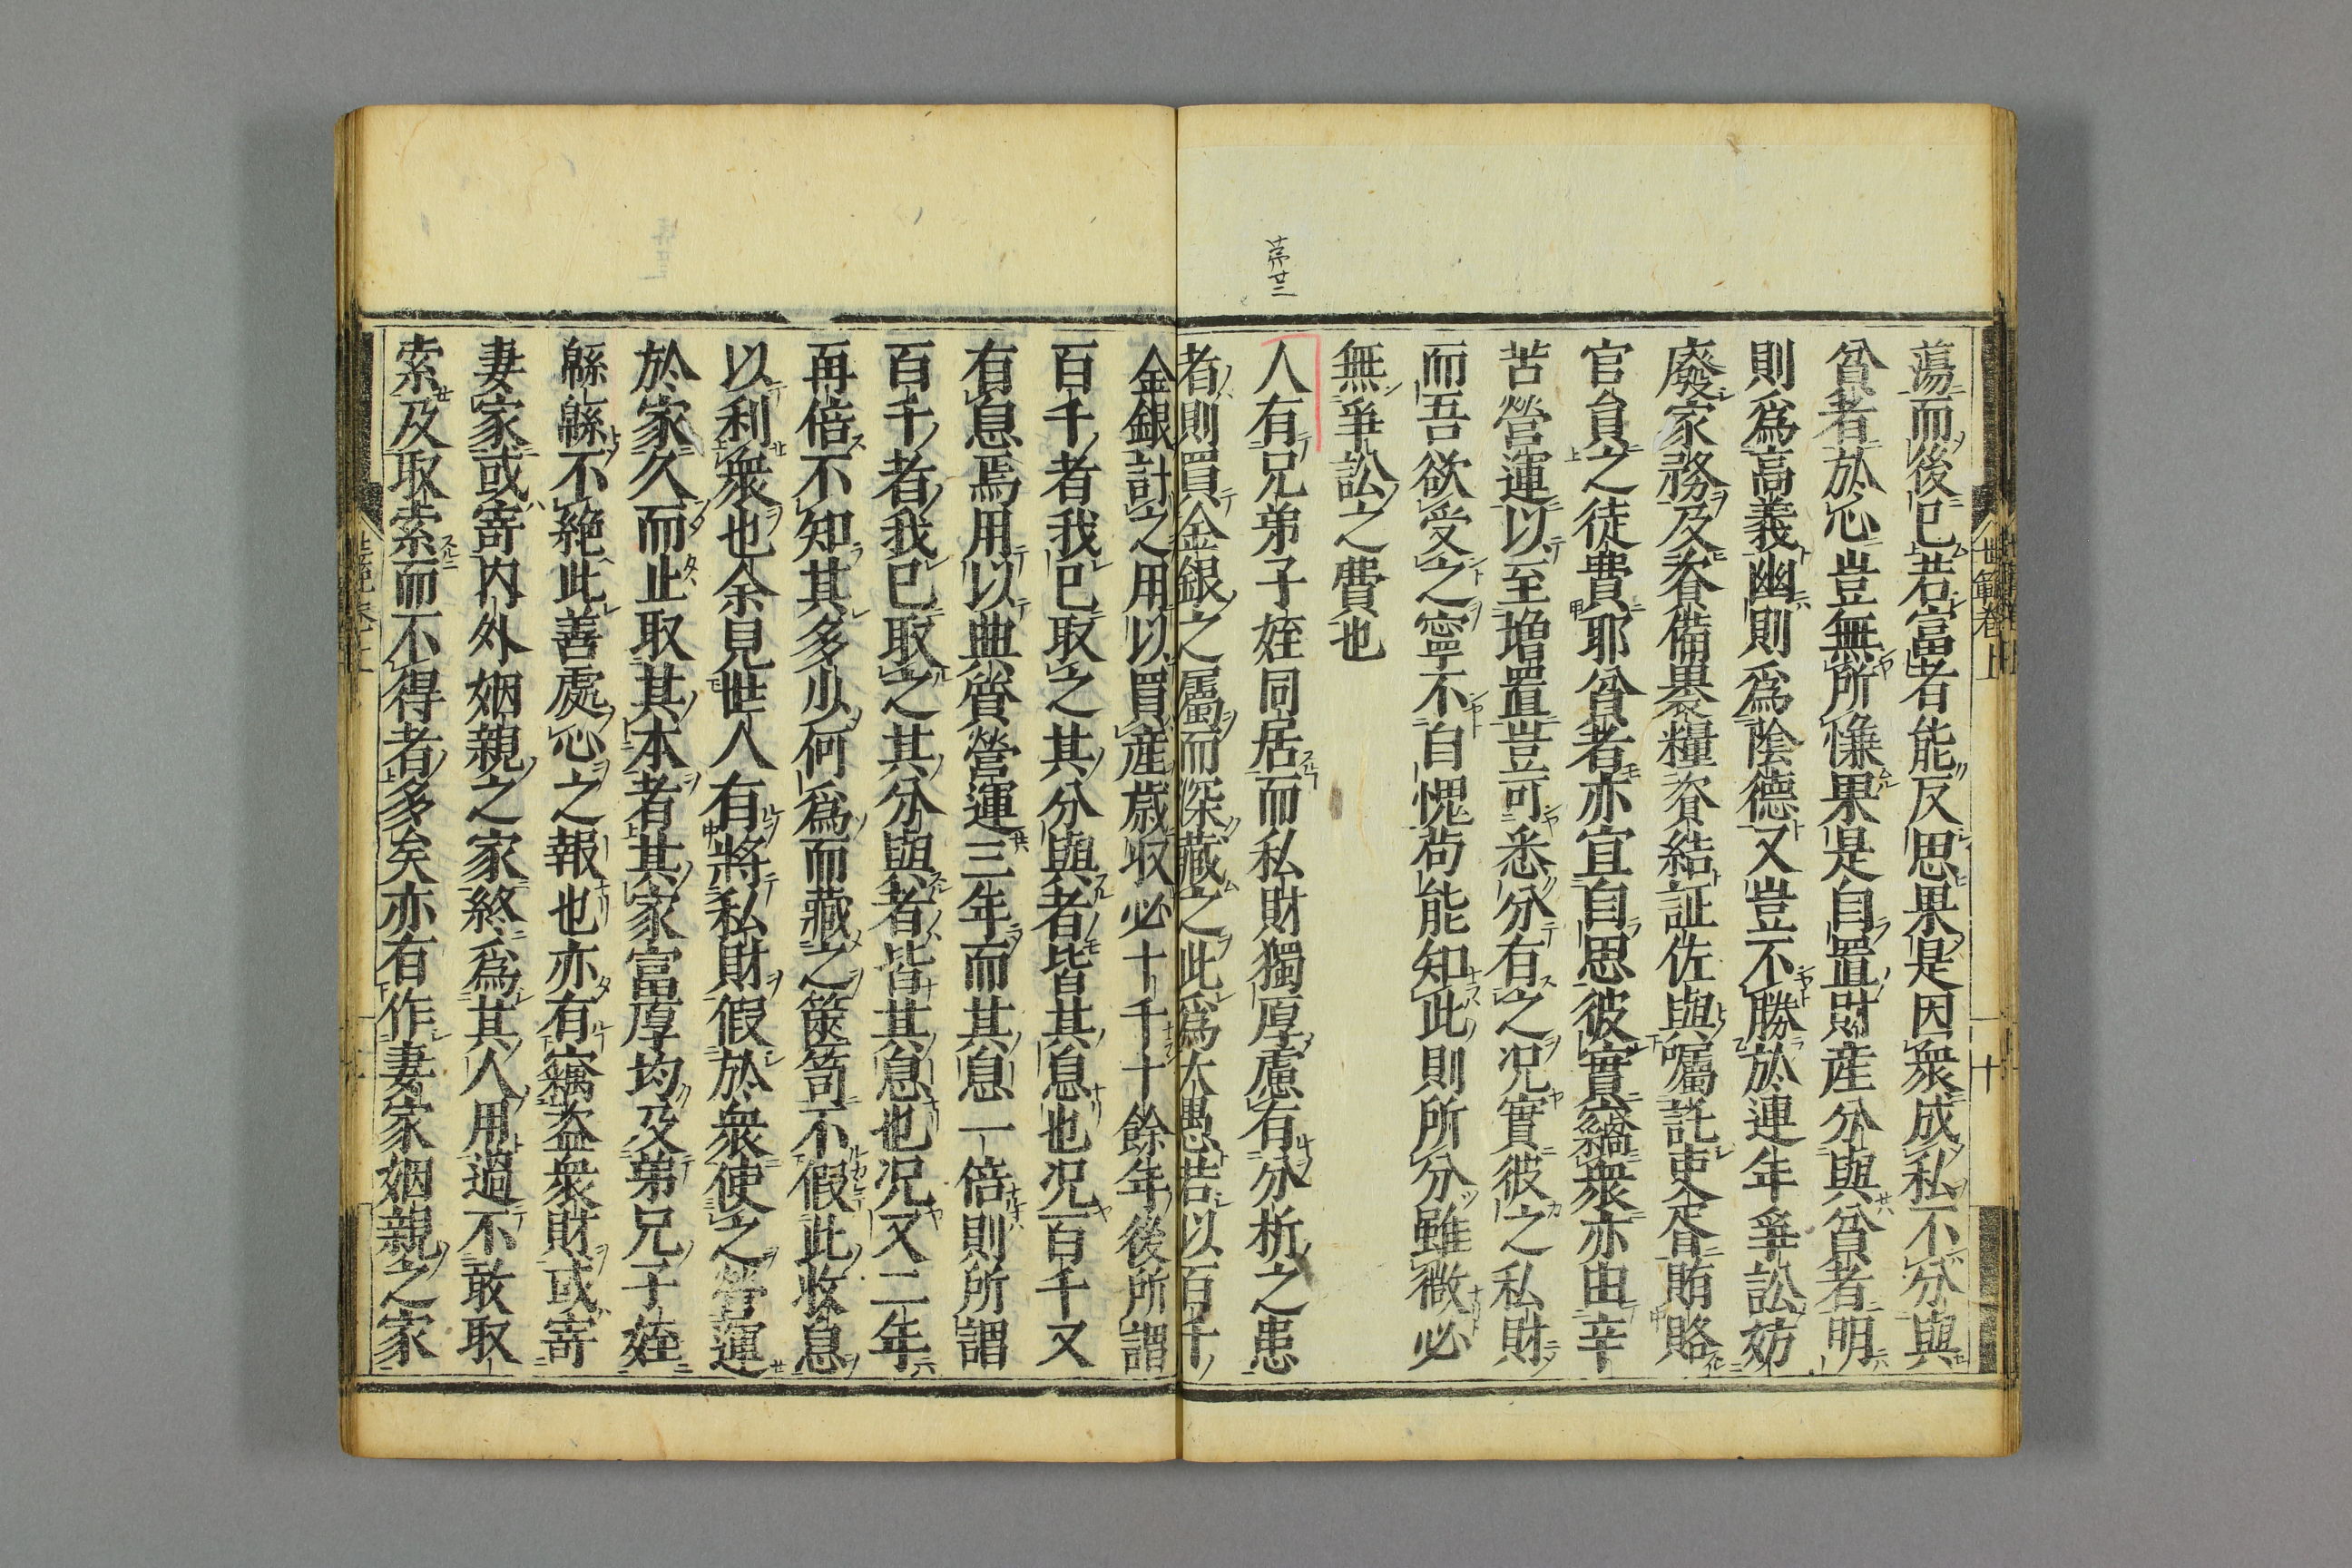 世範卷上
十
蕩而後已若富者能反思果是因衆成私不分與
貧者於心豈無所慊果是自置財産分與貧者明
則爲高義幽則爲陰德又豈不勝於連年爭訟妨
廢家務及資備裹糧資結証佐與嘱託吏胥賄賂
官員之徒費耶貧者亦宜自思彼實竊衆亦由辛
苦營運以至増置豈可悉分有之况實彼之私財
而吾欲受之寧不自愧苟能知此則所分雖微必
無爭訟之費也
第廿二
人有兄弟子姪同居而私財獨厚慮有分析之患
者則買金銀之屬而深藏之此爲大愚若以百千
金銀計之用以買産歳収必十千十餘年後所謂
百千者我已取之其分與者皆其息也况百千又
有息焉用以典質營運三年而其息一倍則所謂
百千者我已取之其分與者皆其息也况又二年
再倍不知其多少何爲而藏之篋笥不假此收息
以利衆也余見世人有將私財假於衆使之營運
於家久而止取其本者其家富厚均及弟兄子姪
緜緜不絶此善處心之報也亦有竊盗衆財或寄
妻家或寄内外姻親之家終爲其人用過不敢取
索及取索而不得者多矣亦有作妻家姻親之家